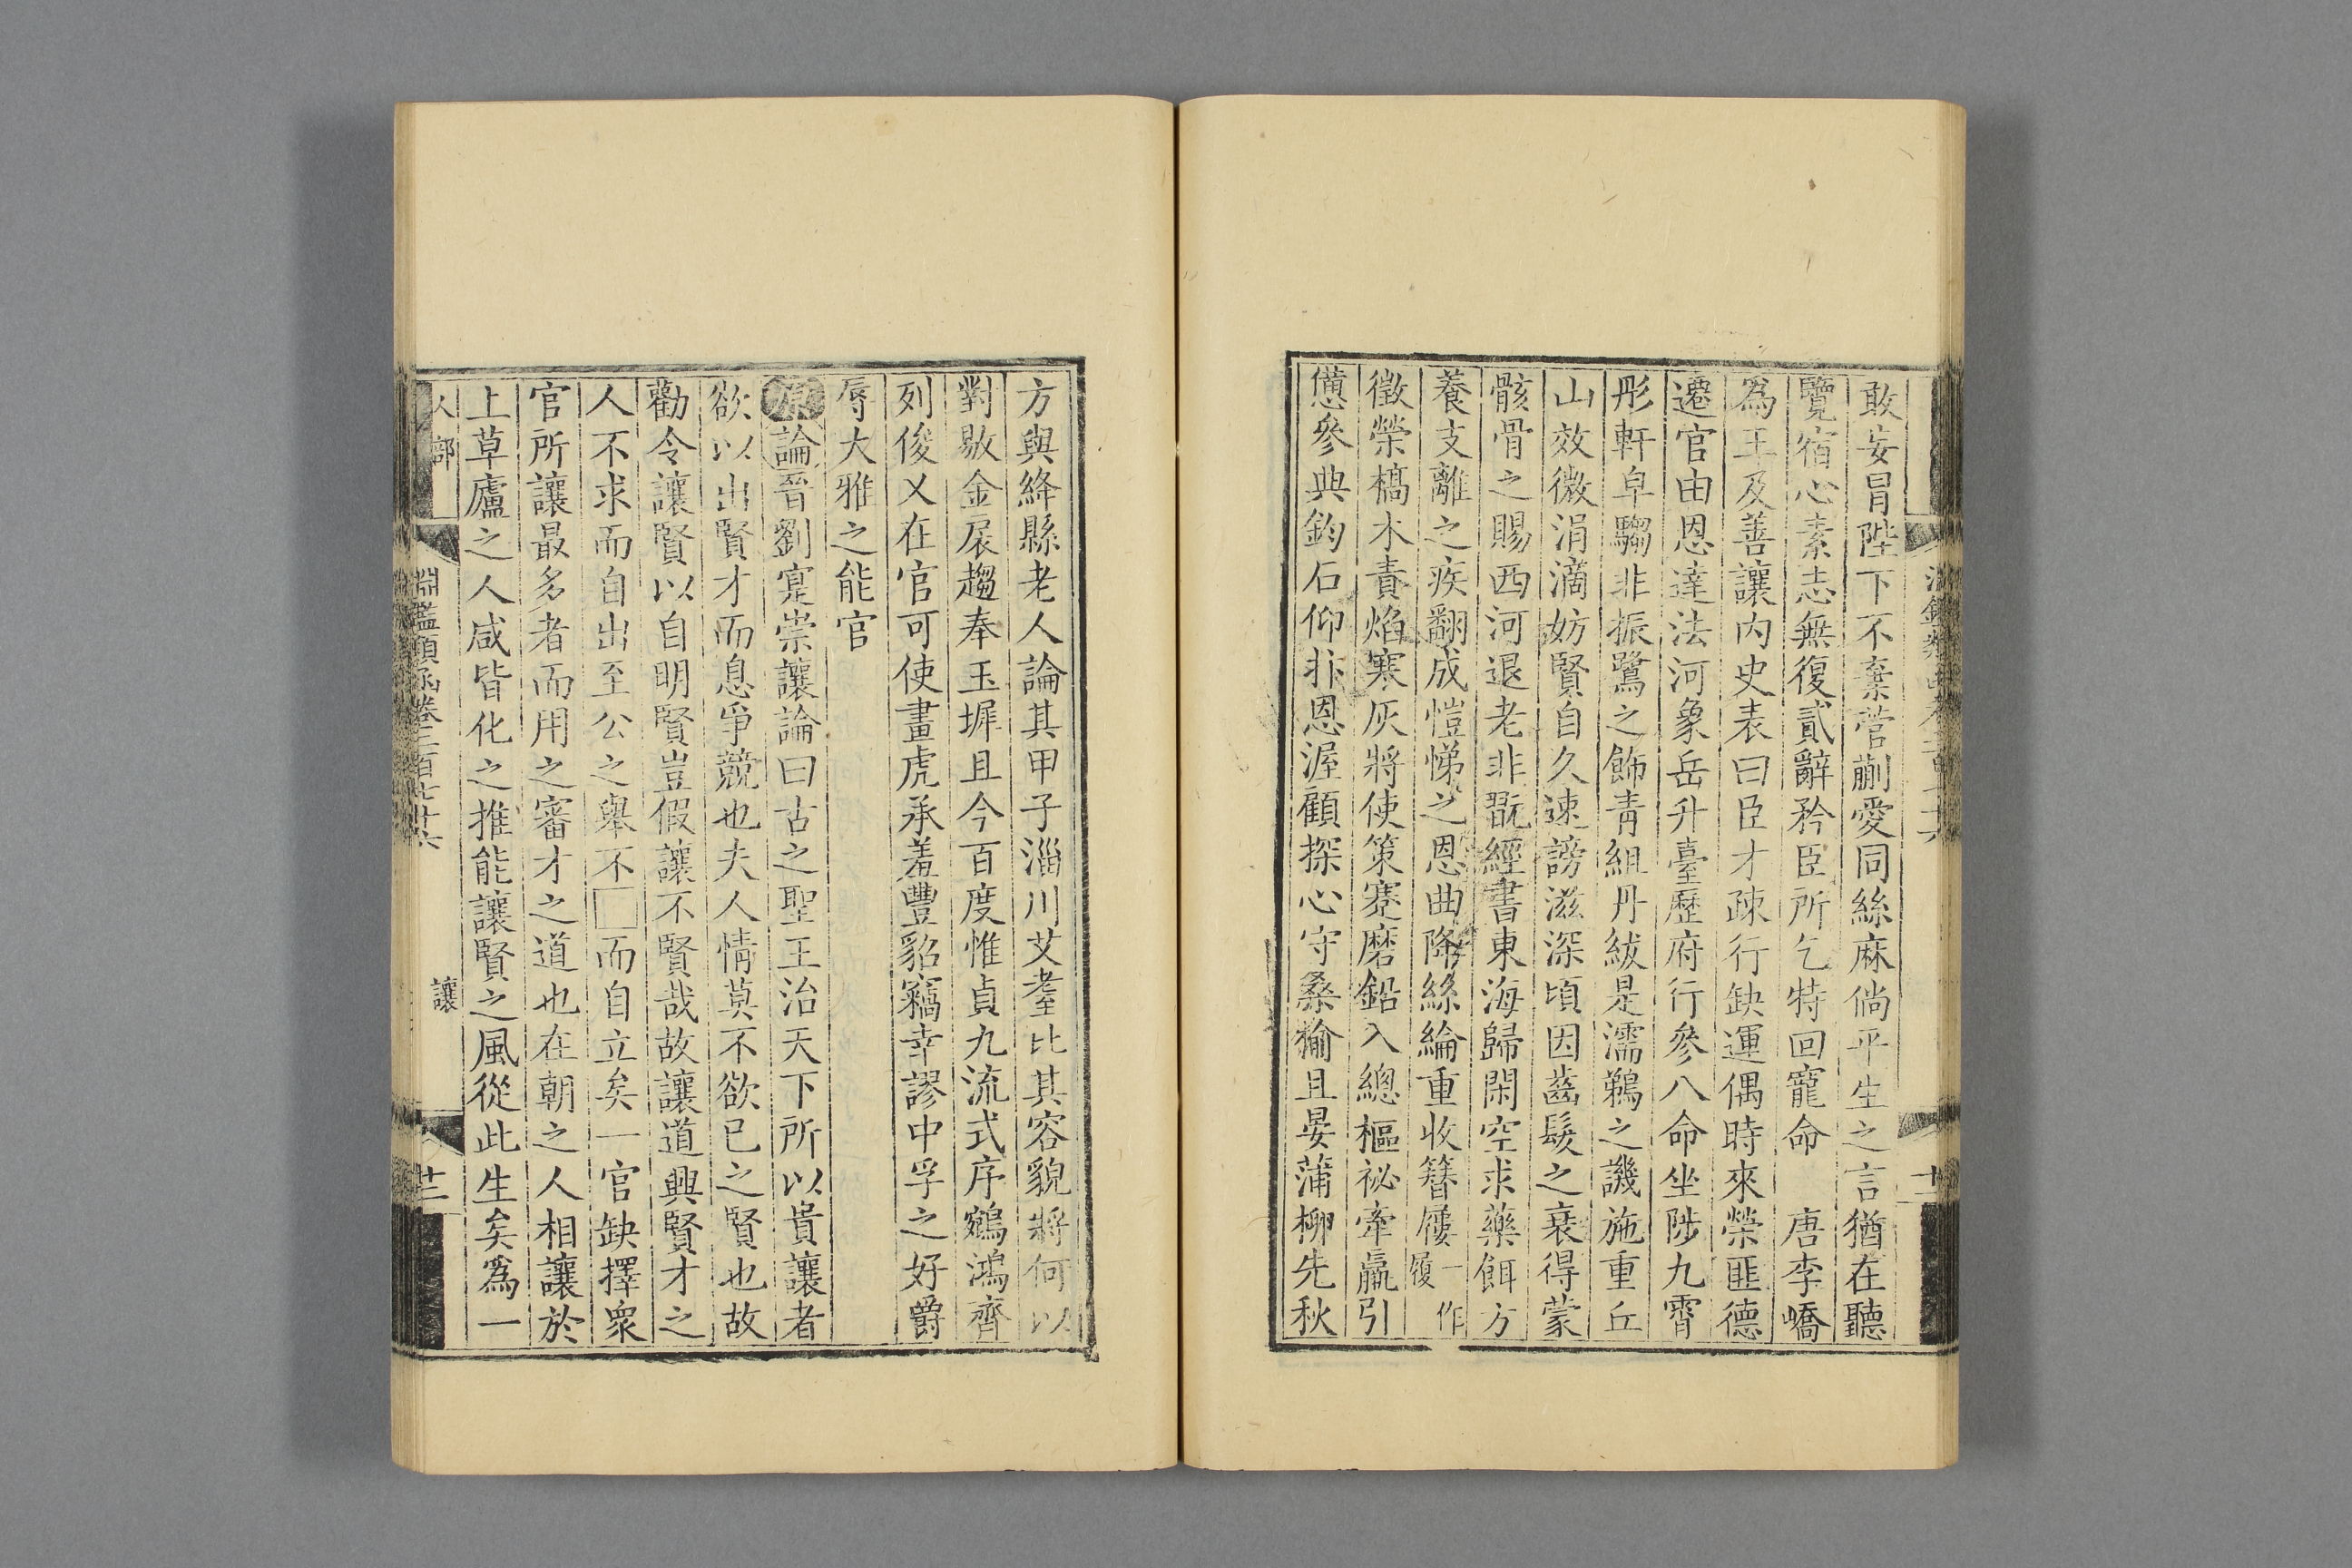 敢妄冒陛下不棄菅蒯愛同絲麻倘平生之言猶在聽
覽宿心素志無復貳辭矜臣所乞特回寵命　唐李嶠
為王及善讓內史表曰臣才疎行缺運偶時來榮匪德
遷官由恩達法河象岳升臺歷府行參八命坐陟九霄
彤軒皁騶非振鷺之飾青組丹紱是濡鵜之譏施重丘
山效微涓滴妨賢自久速謗滋深頃因齒髮之衰得蒙
骸骨之賜西河退老非翫經書東海歸閑空求藥餌方
養支離之疾翻成愷悌之恩曲降絲綸重收簪屨一作履
徵榮槁木責焰寒灰將使策蹇磨鉛入總樞祕牽羸引
憊參典鈞石仰非恩渥顧探心守桑榆且晏蒲柳先秋
方與絳縣老人論其甲子淄川艾耋比其容貌將何以
對敭金扆趨奉玉墀且今百度惟貞九流式序鵷鴻齊
列俊乂在官可使畫虎承羞豐貂竊幸謬中孚之好爵
辱大雅之能官
原論晉劉寔崇讓論曰古之聖王治天下所以貴讓者
欲以出賢才而息爭競也夫人情莫不欲已之賢也故
勸令讓賢以自明賢豈假讓不賢哉故讓道興賢才之
人不求而自出至公之舉不□而自立矣一官缺擇衆
官所讓最多者而用之審才之道也在朝之人相讓於
上草廬之人咸皆化之推能讓賢之風從此生矣為一
人部　淵鑑類函卷三百廿六　讓　十二